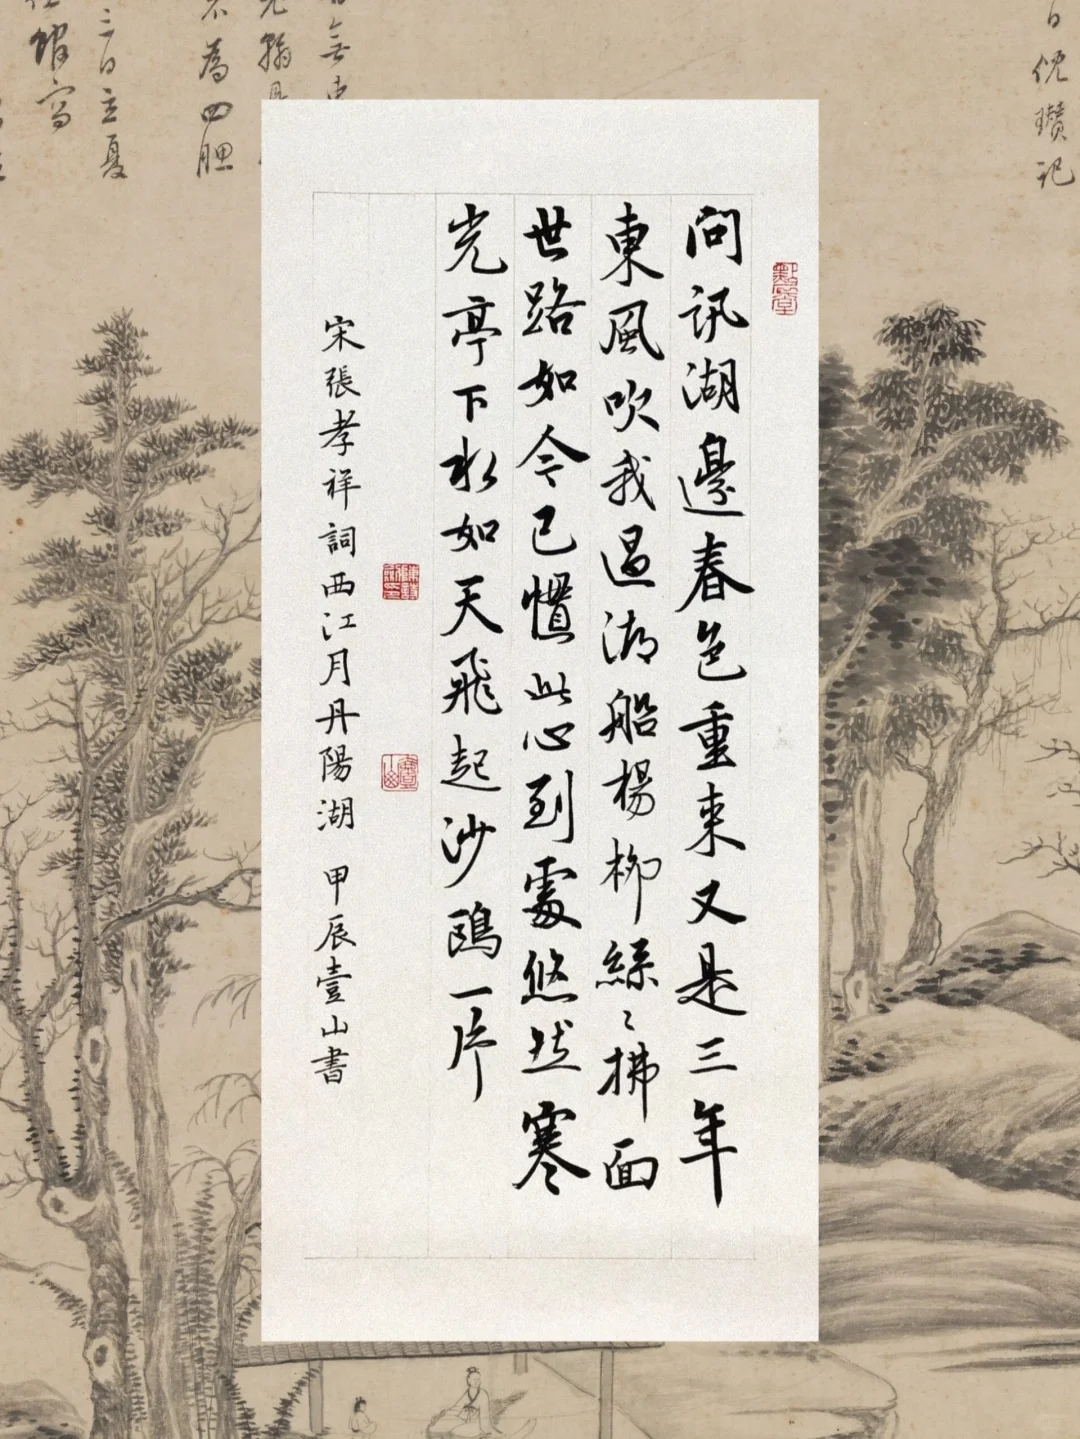 問訊湖邊春色重来又是三年
東風吹我過湖船楊柳絲〻拂面
世路如今已慣此心到處悠然寒
光亭下水如天飛起沙鷗一片
宋張孝祥詞西江月丹陽湖 甲辰壹山書
日倪瓚記
不為四
三日立夏